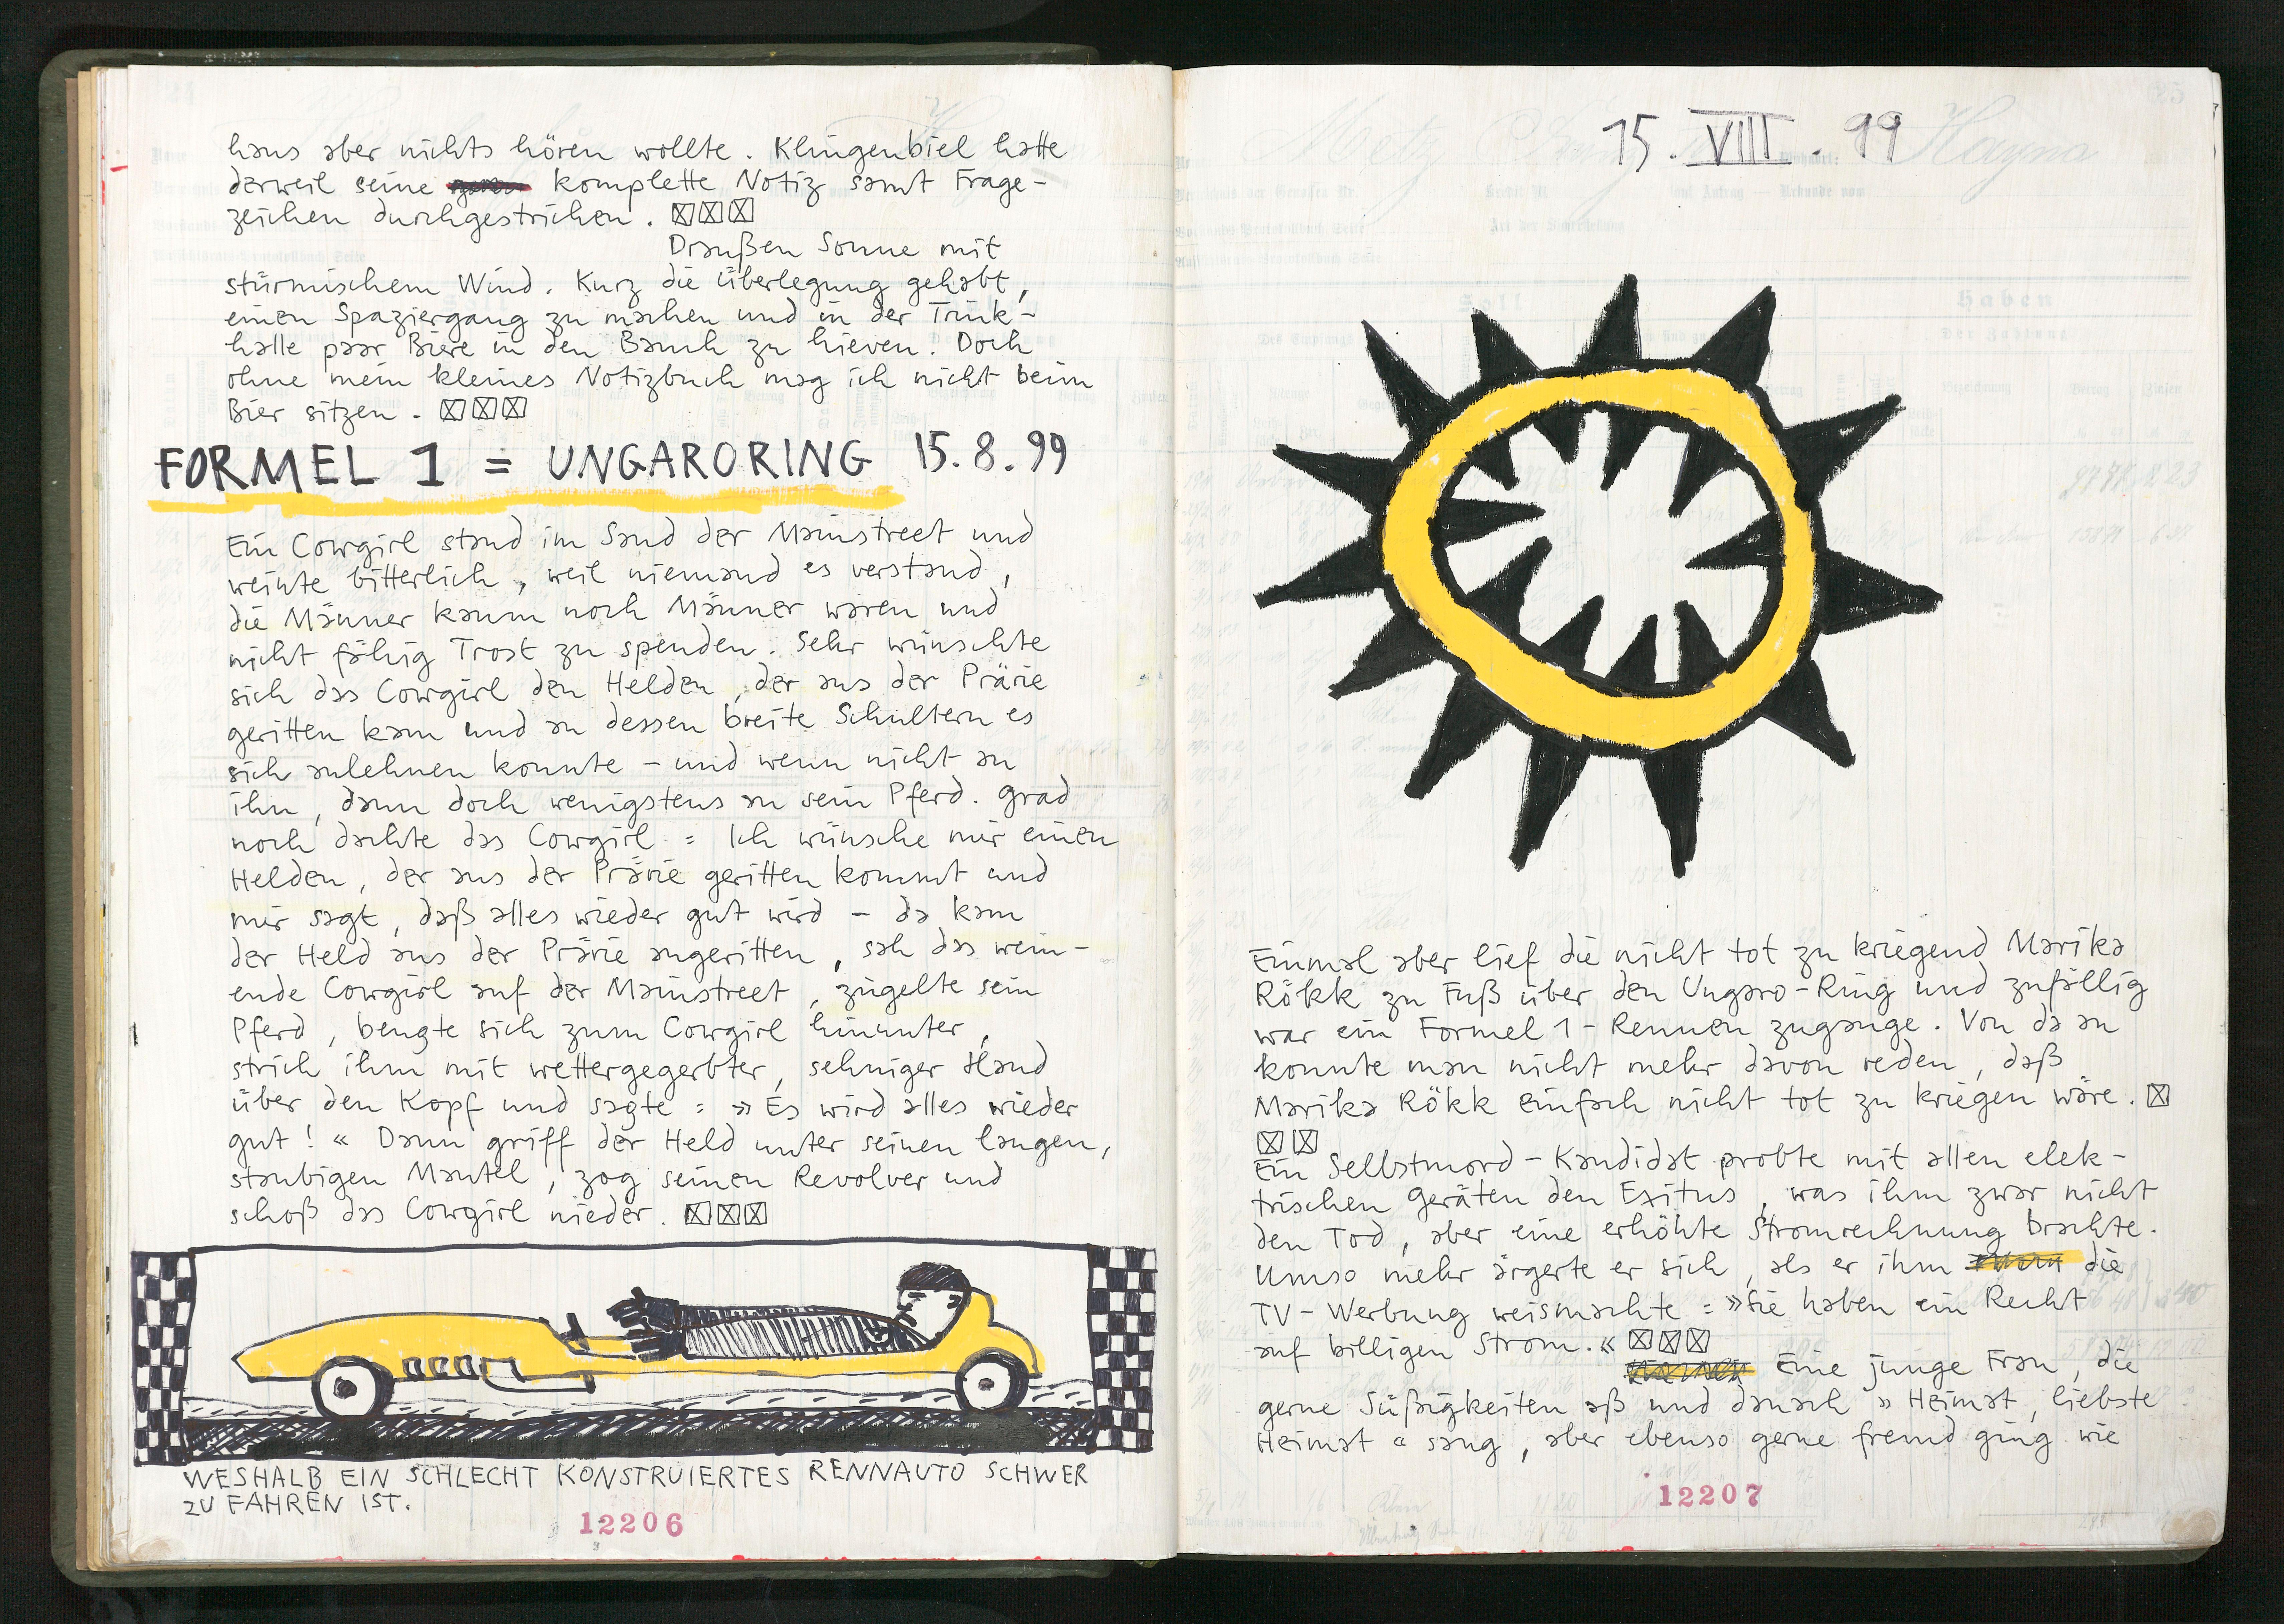 haus aber nichts hören wollte. Klingenbiel hatte
derweil seine komplette Notiz samt Frage-
zeichen durchgestrichen. ☒☒☒
Draußen Sonne mit
stürmischem Wind. Kurz die Überlegung gehabt,
einen Spaziergang zu machen und in der Trink-
halle paar Biere in den Bauch zu hieven. Doch
ohne mein kleines Notizbuch mag ich nicht beim
Bier sitzen. ☒☒☒
FORMEL 1 = UNGARORING 15.8.99
Ein Cowgirl stand im Sand der Mainstreet und
weinte bitterlich, weil niemand es verstand,
die Männer kaum noch Männer waren und
nicht fähig Trost zu spenden. Sehr wünschte
sich das Cowgirl den Helden, der aus der Prärie
geritten kam und an dessen breite Schultern es
sich anlehnen konnte – und wenn nicht an
ihn, dann doch wenigstens an sein Pferd. Grad
noch dachte das Cowgirl = Ich wünsche mir einen
Helden, der aus der Prärie geritten kommt und
mir sagt, daß alles wieder gut wird – da kam
der Held aus der Prärie angeritten, sah das wein-
ende Cowgirl auf der Mainstreet, zügelte sein
Pferd, beugte sich zum Cowgirl hinunter,
strich ihm mit wettergegerbter, sehniger Hand
über den Kopf und sagte = »Es wird alles wieder
gut!« Dann griff der Held unter seinen langen,
staubigen Mantel, zog seinen Revolver und
schoß das Cowgirl nieder. ☒☒☒
WESHALB EIN SCHLECHT KONSTRUIERTES RENNAUTO SCHWER
ZU FAHREN IST.
12206
15.VIII.99
Einmal aber lief die nicht tot zu kriegend Marika
Rökk zu Fuß über den Ungaro-Ring und zufällig
war ein Formel 1-Rennen zugange. Von da an
konnte man nicht mehr davon reden, daß
Marika Rökk einfach nicht tot zu kriegen wäre. ☒
☒☒
Ein Selbstmord-Kandidat probte mit allen elek-
trischen Geräten den Exitus, was ihm zwar nicht
den Tod, aber eine erhöhte Stromrechnung brachte.
Umso mehr ärgerte er sich, als er ihm die
TV-Werbung weismachte = »Sie haben ein Recht
auf billigen Strom.« ☒☒☒
Eine junge Frau, die
gerne Süßigkeiten aß und danach »Heimat, liebste
Heimat« sang, aber ebenso gerne fremd ging wie
12207